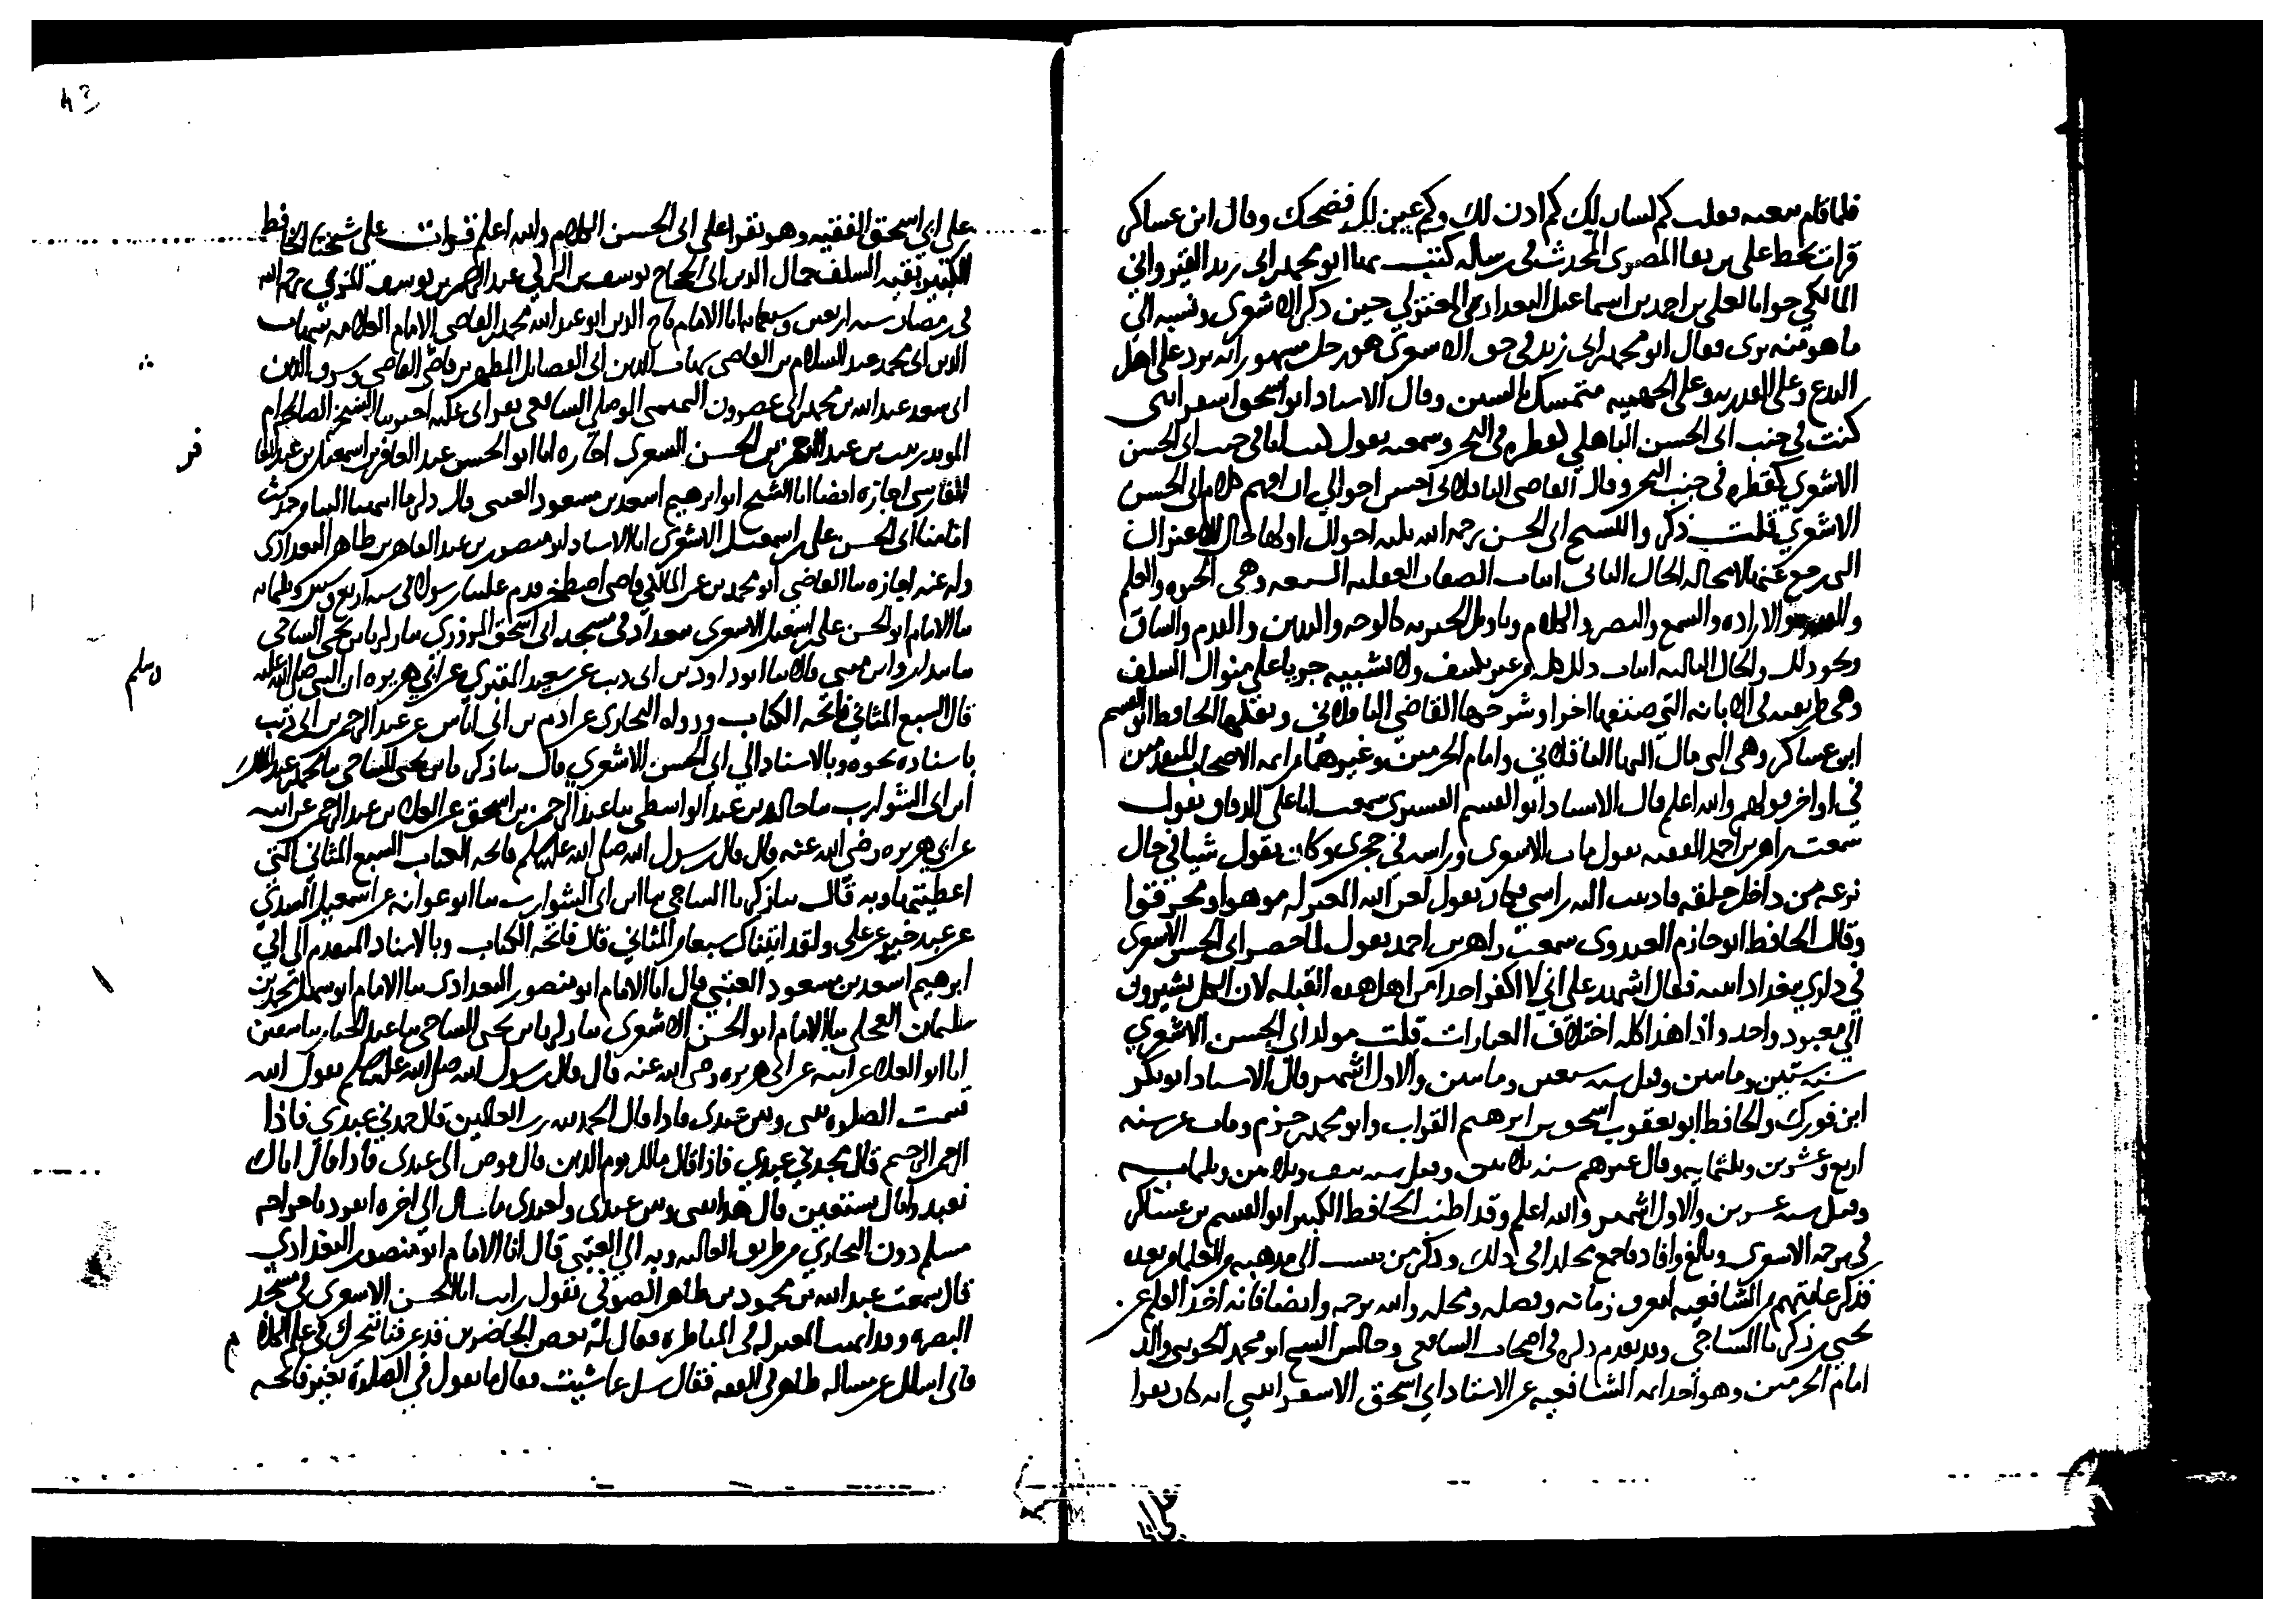 فلما قام تبعته فقلت كم لسان لك كم اذن لك وكم عين لك فضحك وقال ابن عساكر
قرات بخط علي بن بقا المصري المحدث في رساله كتب بها ابو محمد ابي زيد القيرواني
المالكي جوابا لعلي بن احمد بن اسماعيل البغدادي المعتزلي حين ذكر الاشعري ونسبه الي
ما هو منه بري فقال ابو محمد ابي زيد في حق الاشعري هو رجل مشهور انه يرد علي اهل
البدع وعلي القدريه وعلي الجهميه متمسك بالسنن وقال الاستاد ابو اسحق الاسفرايني
كنت في جنب ابي الحسن الباهلي كقطره في البحر وسمعته يقول كنت انا في جنب ابي الحسن
الاشعري كقطره في جنب البحر وقال القاضي الباقلاني احسن احوالي ان افهم كلام ابي الحسن
الاشعري قلت ذكروا للشيخ ابي الحسن رحمه الله ثلثه احوال اولها حال الاعتزال
التي رجع عنها لا محاله الحال الثاني اثبات الصفات العقليه السبعه وهي الحيوه والعلم
والقدره والاراده والسمع والبصر والكلام وتاويل الخبريه كالوجه واليدين والقدم والساق
ونحو ذلك والحال الثالثه اثبات ذلك كله من غير تكييف ولا تشبيه جريا علي منوال السلف
وهي طريقته في الابانه التي صنفها اخرا وشرحها القاضي الباقلاني ونقلها الحافظ ابو القسم
ابن عساكر وهي التي مال اليها الباقلاني وامام الحرمين وغيرهما من ايمه الاصحاب المتقدمين
في اواخر قولهم والله اعلم قال الاستاد ابو القسم القشيري سمعت ابا علي الدقاق يقول
سمعت زاهر بن احمد الفقيه يقول مات الاشعري وراسه في حجري وكان يقول شيا في حال
نزعه من داخل حلقه فادنيت اليه راسي فكان يقول لعن الله المعتزله موهوا ومخرقوا
وقال الحافظ ابو حازم العبدوي سمعت زاهر بن احمد يقول لما حضر ابي الحسن الاشعري
في داري ببغداد اتيته فقال اشهد علي اني لا اكفر احدا من اهل هذه القبله لان الكل يشيرون
الي معبود واحد وانما هذا كله اختلاف العبارات قلت مولد ابي الحسن الاشعري
سنه ستين ومايتين وقيل سنه سبعين ومايتين والاول اشهر قال الاستاد ابو بكر
ابن فورك والحافظ ابو يعقوب اسحق بن ابرهيم القراب وابو محمد بن حزم ومات سنه
اربع وعشرين وثلثمايه وقال غيرهم سنه ثلاثين وقيل سنه نيف وثلاثين وثلثمايه
وقيل سنه عشرين والاول اشهر والله اعلم وقد اطنب الحافظ الكبير ابو القسم بن عساكر
في ترجمه الاشعري وبالغ وافاد مجلدا في ذلك وذكر من ينسب الي مذهبه من العلما وبعده
فذكر عامتهم من الشافعيه فيعرف زمانه وفضله ومحله والله يرحمه وايضا فانه اخذ العلم عن
يحيي زكريا الساجي وقد تقدم ذكره في اصحاب الشافعي وحكي الشيخ ابو محمد الجويني والد
امام الحرمين وهو احد ايمه الشافعيه عن الاستاد ابي اسحق الاسفرايني انه كان يقرا
علي ابي اسحق الفقيه وهو يقرا علي ابي الحسن الكلام والله اعلم قرات علي شيخنا الحافظ
الكبير بقيه السلف جمال الدين ابي الحجاج يوسف بن الزكي عبد الرحمن بن يوسف المزي رحمه الله
في رمضان سنه اربعين وسبعمايه انا الامام تاج الدين ابو عبد الله محمد القاضي الامام العلامه شهاب
الدين ابي محمد عبد السلام بن القاضي شهاب الدين ابي الفضايل المطهر بن قاضي القاضي شرف الدين
ابي سعد عبد الله بن محمد ابي عصرون التميمي الموصلي الشافعي اخبرنا الشيخ الصالح ام
المويد زينب بن عبد الرحمن بن الحسن الشعري اجازه انا ابو الحسن عبد الغافر بن اسمعيل بن عبد الغا
فر
الفارسي اجازه ايضا انا الشيخ ابو ابرهيم اسعد بن مسعود العتبي قال
امامنا ابي الحسن علي بن اسمعيل الاشعري انا الاستاد ابو منصور بن عبد القاهر بن طاهر البغدادي
ولي عنه اجازه نا القاضي ابو محمد بن عمر المالكي قاضي اصطخر قدم علينا رسولا في سنه اربع وستين وثلثمايه
نا الامام ابو الحسن علي بن اسمعيل الاشعري ببغداد في مسجد ابي اسحق المروزي نا زكريا بن يحيي الساجي
نا بندار وابن مثني قالا نا ابو داود بن ابي ذيب عن سعيد المقبري عن ابي هريره ان النبي صلي الله عليه
وسلم
قال السبع المثاني فاتحه الكتاب ورواه البخاري عن ادم بن ابي اياس عن عبد الرحمن ابي ذيب
باسناده نحوه وبالاسناد الي ابي الحسن الاشعري قال نا زكريا بن يحيي الساجي نا محمد عبد الملك
ابن ابي الشوارب نا خالد بن عبد الله الواسطي نا عبد الرحمن بن اسحق عن العلا بن عبد الرحمن عن ابيه
عن ابي هريره رضي الله عنه قال قال رسول الله صلي الله عليه وسلم فاتحه الكتاب السبع المثاني التي
اعطيتها وبه قال نا زكريا الساجي نا ابن ابي الشوارب نا ابو عوانه عن اسمعيل السدي
عن عبد خير عن علي ولقد اتيناك سبعا من المثاني قال فاتحه الكتاب وبالاسناد المتقدم الي ابي
ابرهيم اسعد بن مسعود العتبي قال انا الامام ابو منصور البغدادي نا الامام ابو سهل محمد بن
سليمان العجلي نا الامام ابو الحسن الاشعري نا زكريا بن يحيي الساجي نا عبد الجبار نا سفين
انا ابو العلا عن ابيه عن ابي هريره رضي الله عنه قال قال رسول الله صلي الله عليه وسلم يقول الله
قسمت الصلوه بيني وبين عبدي فاذا قال الحمد لله رب العالمين قال حمدني عبدي فاذا
الرحمن الرحيم قال مجدني عبدي فاذا قال مالك يوم الدين قال فوض الي عبدي فاذا قال اياك
نعبد واياك نستعين قال هذا بيني وبين عبدي ولعبدي ما سال الي اخره انفرد باخراجه
مسلم دون البخاري من طريق وبه الي العتبي قال انا الامام ابو منصور البغدادي
قال سمعت عبد الله بن محمود بن طاهر الصوفي يقول رايت ابا الحسن الاشعري في مسجد
البصره وقد ابهت المعتزله في المناظره فقال له بعض الحاضرين قد عرفنا تبحرك في علم الكلا
م
فاني اسالك عن مساله ظاهره في الفقه فقال سل عما شيت فقال ما تقول في الصلوه بغير فاتحه